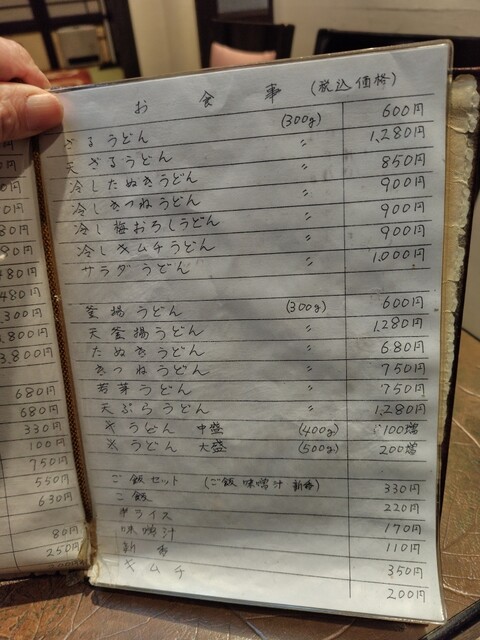 480円
480円
680円
680円
330円
100円
750円
550円
630円
80円
250円
お食事 (税込価格)
ざるうどん (300g) 600円
天ざるうどん 〃 1,280円
冷したぬきうどん 〃 850円
冷しきつねうどん 〃 900円
冷し梅おろしうどん 〃 900円
冷しキムチうどん 〃 900円
サラダうどん 〃 1,000円
釜揚うどん (300g) 600円
天釜揚うどん 〃 1,280円
たぬきうどん 〃 680円
きつねうどん 〃 750円
若芽うどん 〃 750円
天ぷらうどん 〃 1,280円
※うどん 中盛 (400g) 100増
※うどん 大盛 (500g) 200増
ご飯セット (ご飯 味噌汁 新香) 330円
ご飯 220円
半ライス 170円
味噌汁 110円
新香 350円
キムチ 200円